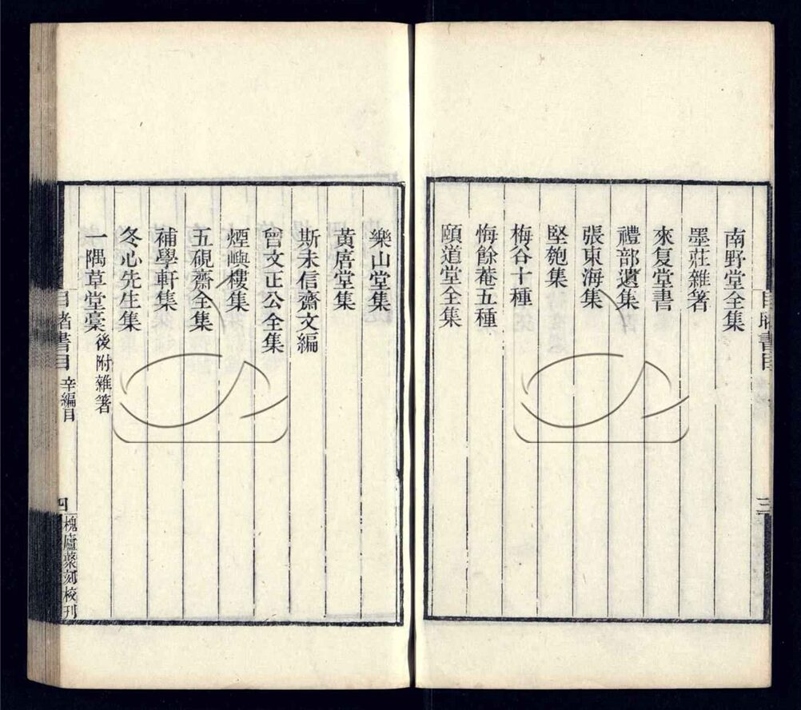 南野堂全集
墨莊雜著
來复堂書
禮部遺集
張東海集
堅匏集
梅谷十種
悔餘菴五種
頤道堂全集
目睹書目
三
樂山堂集
黃虎堂集
斯未信齋文編
曾文正公全集
煙嶼樓集
五硯齋全集
補學軒集
冬心先生集
一隅草堂稾後附雜箸
目睹書目
辛編目
四
槐廬叢刻校刊